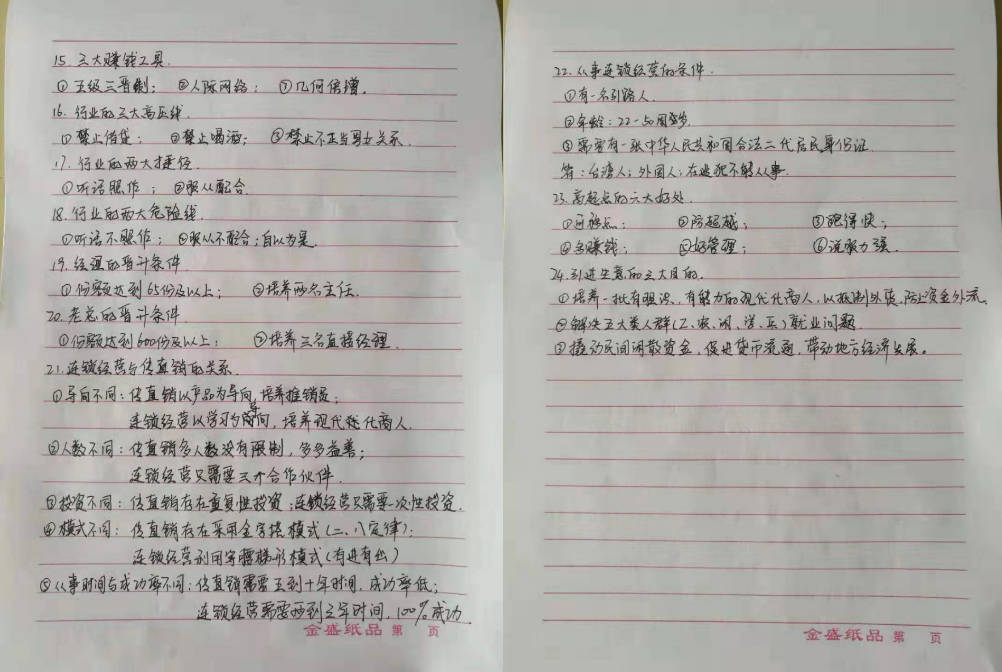 15. 三大赚钱工具.
①五级三晋制; ②人际网络; ③几何倍增.
16. 行业的三大高压线.
①禁止借贷; ②禁止喝酒; ③禁止不正当男女关系.
17. 行业的两大捷径.
①听话照作; ②服从配合.
18. 行业的两大危险线.
①听话不照作; ②服从不配合;自以为是.
19. 经理的晋升条件
①份额达到65份及以上; ②培养两名主任.
20. 老总的晋升条件
①份额达到600份及以上; ②培养三名直接经理.
21. 连锁经营与传直销的关系.
①导向不同: 传直销以产品为导向,培养推销员;
连锁经营以学习为导向, 培养现代化商人.
②人数不同: 传直销多人数没有限制, 多多益善;
连锁经营只需要三个合作伙伴.
③投资不同: 传直销存在重复性投资;连锁经营只需要一次性投资.
④模式不同: 传直销存在采用金字塔模式(二、八定律);
连锁经营利用梯形模式(有进有出)
⑤从事时间与成功率不同: 传直销需要五到十年时间, 成功率低;
连锁经营需要两到三年时间, 100%成功.
金盛纸品 第 页
22. 从事连锁经营的条件.
①有一名引路人.
②年龄: 22-50周岁.
③需要有一张中华人民共和国合法二代居民身份证.
答: 台湾人; 外国人; 在逃犯不能从事.
23. 高起点的六大好处.
①日程点; ②防超越; ③跑得快;
④多赚钱; ⑤好管理; ⑥说服力强.
24. 引进生意的三大目的.
①培养一批有胆识、有能力的现代化商人, 以抵制外货、防止资金外流.
②解决五大类人群(工、农、闲、学、兵)就业问题.
③撬动民间闲散资金, 促进货币流通, 带动地方经济发展。
金盛纸品 第 页